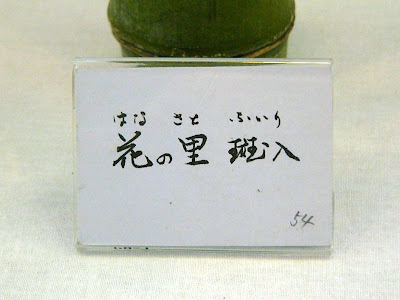 はな さと ふいり
花の里 斑入
54